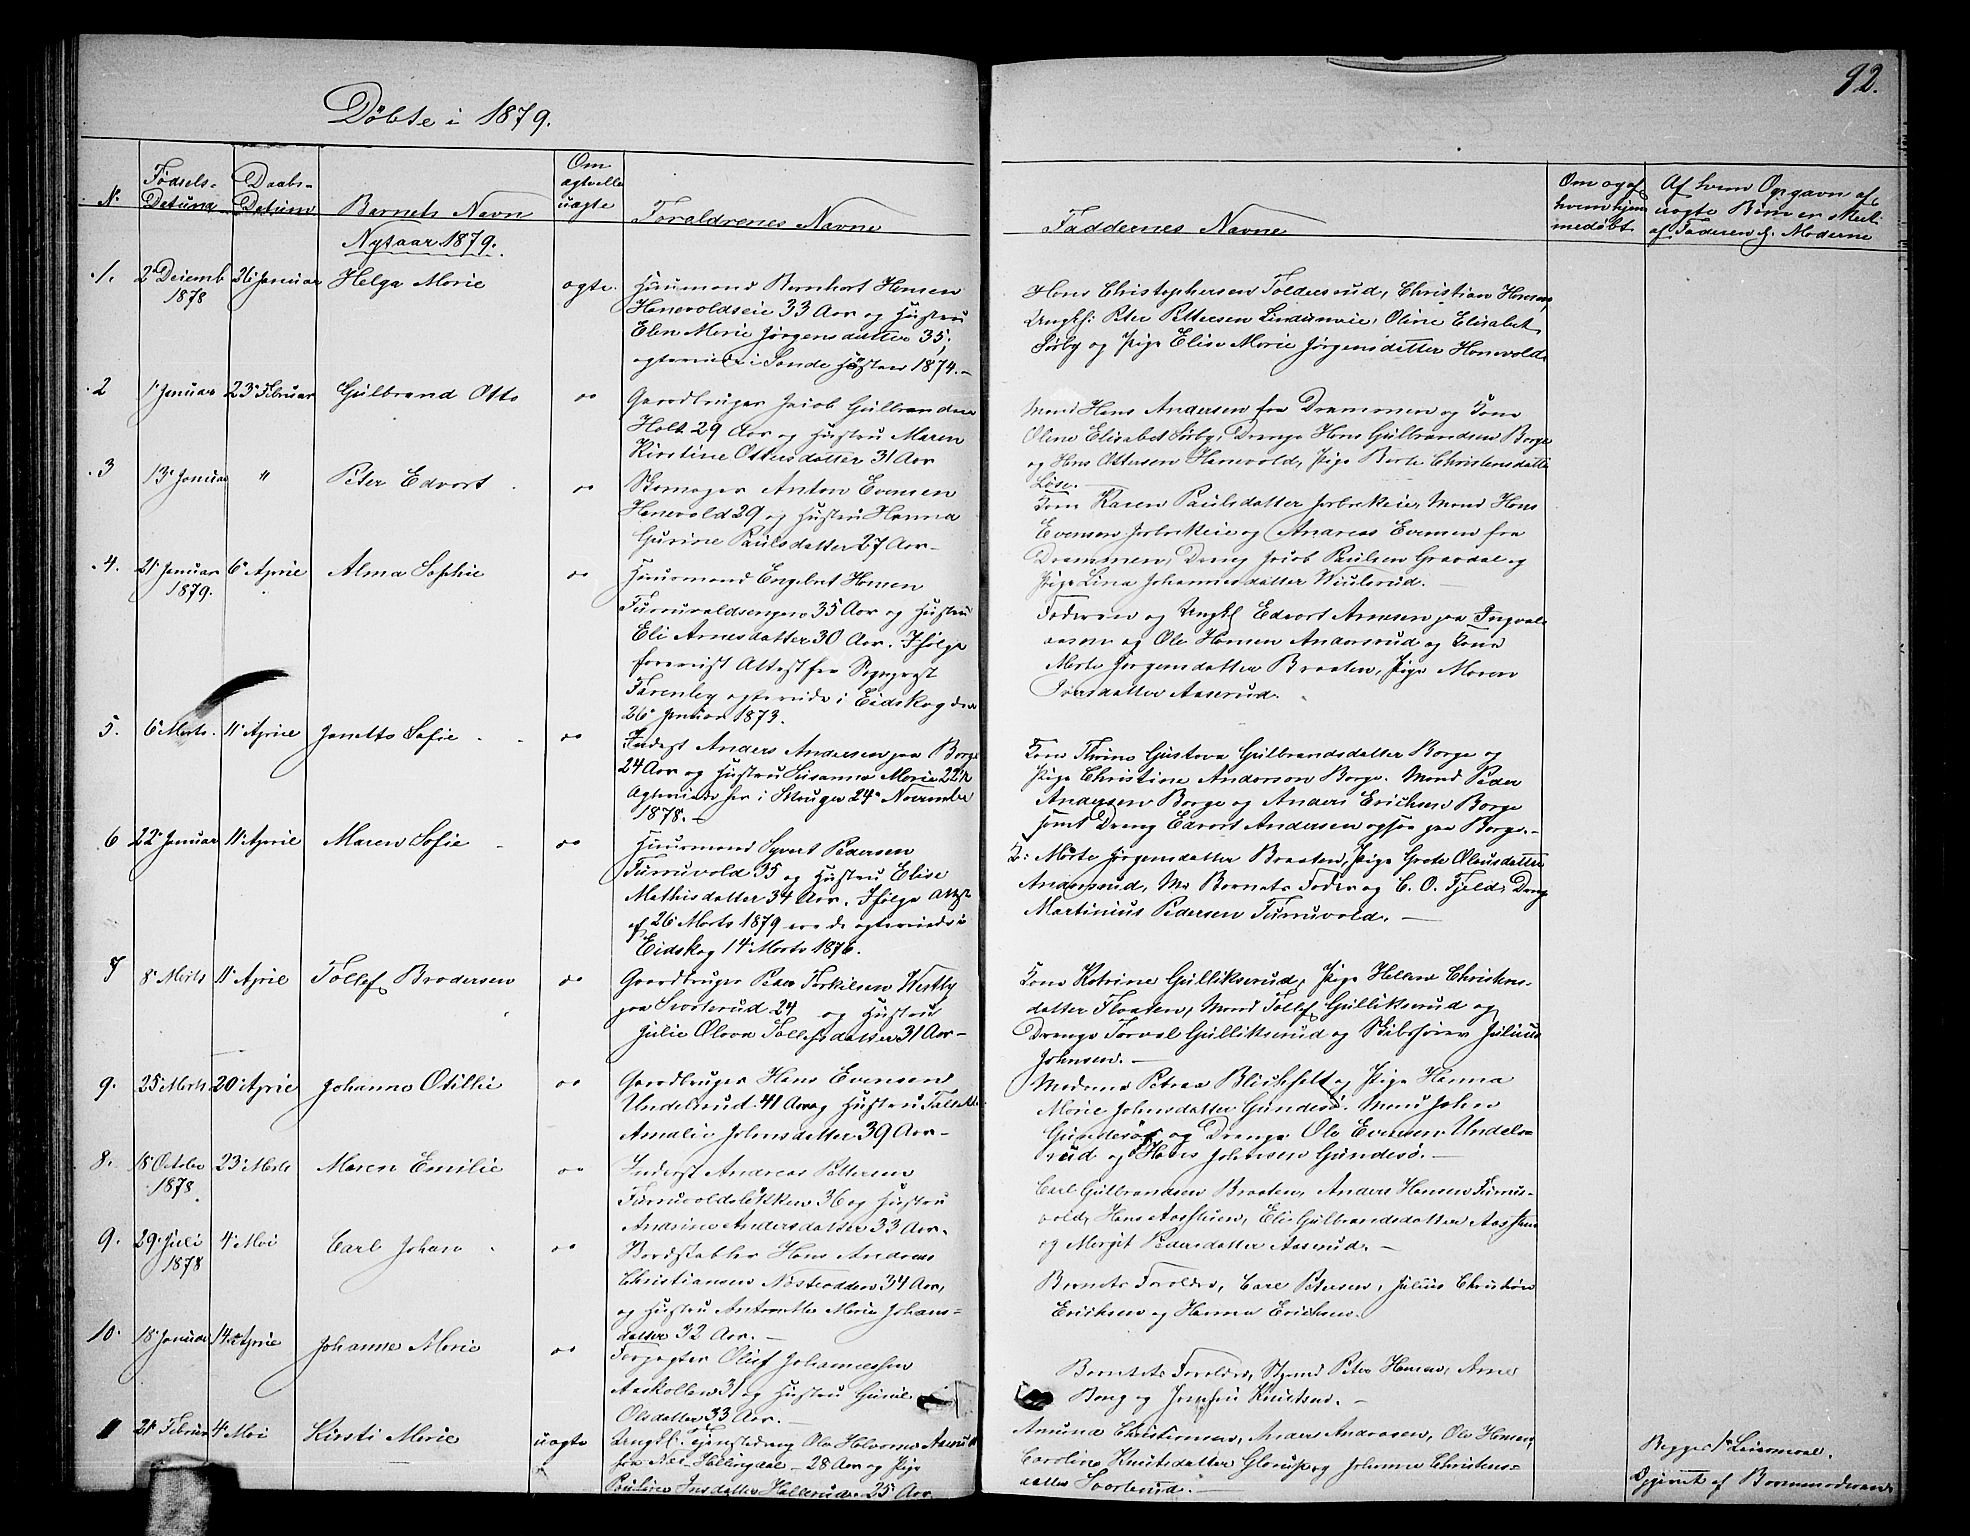 92.
Døbte i 1879.
№
Fødsels-
Datum
Daabs-
Datum
Barnets Navn
Om
ægte eller
uægte
Forældrenes Navne
Faddernes Navne
Om og af
hvem hjem
medøbt
Af hvem Opgavn af
uægte Børn er
af Faderen & Moderne
Nytaar 1879.
1.
2 Decemb
1878
26 Januar
Helga Marie
ægte.
Huusmand Bernhart Hansen
Hanevoldseie 33 Aar og Hustru
Elen Marie Jørgensdatter 35,
ægteviede i Sande Høsten 1874.-
Hans Christophersen Toldersrud, Christian Hansen,
Ungk: Peter Pettersen Lindumeie, Oline Elisabet
Sørby og Pige Elise Marie Jørgensdatter Hanevold
2
1 Januar
23 Februar
Gulbrand Otto
"
Gaardbruger Jacob Gulbrandsen
Holt 29 Aar og Hustru Maren
Kirstine Ottersdatter 31 Aar
Mand Hans Andersen fra Drammen og Kone
Oline Elisabet Sørby, Drenge Hans Gulbrandsen Borge
og Hans Ottersen Hanevold, Pige Berte Christensdatter
3
13 Januar
"
Peter Edvart
"
Skomager Anton Evensen
Hanevold 29 og Hustru Hanna
Gurine Paulsdatter 27 Aar-
Kone Karen Paulsdatter, Mand Hans
Evensen og Andreas Evensen fra
Drammen, Dreng Jacob Paulsen Gravdal og
Pige Lina Johannesdatter Wiulsrud.
4.
21 Januar
1879.
6 Aprie
Alma Sophie
"
Huusmand Engebret Hansen
Furuvoldsengen 35 Aar og Hustru
Eli Arnesdatter 30 Aar. Ifølge
forevist Attest fra Sognepræst
Farenby ægteviede i Eidskog den
26 Januar 1873.
Faderen og Ungk Edvart Arnesen paa
og Ole Hansen Andersrud og Kone
Marte Jørgensdatter Braaten, Pige Maren
Iversdatter Aaserud.
5.
6 Marts.
11 Aprie
Janette Sofie
"
Inderst Anders Andersen paa Borge
24 Aar og Hustru Susanne Marie 22
Ægteviede her i Skouger 24 November
1878.-
Kone Gustava Gulbrandsdatter Borge og
Pige Christine Anderson Borge. Mand Peder
Andersen Borge og Anders Erichsen Borge
samt Dreng Edvart Andersen ogsaa paa Borge.-
6
22 Januar
11 Apriel
Maren Sofie
"
Huusmand Syvert Pedersen
Furruvold 35 og Hustru Elise
Mathisdatter 34 Aar. Ifølge Attest
af 26 Marts 1879 ere de ægteviede i
Eidskog 14 Marts 1876.
K: Marte Jørgensdatter Braaten, Pige Grete Olausdatter
Andersrud, Ma Barnets Fader og C. O. Fjeld, Dreng
Martinius Pedersen Furruvold.-
7
8 Marts
11 Apriel
Tollef Brodersen
"
Gaardbruger Peter Torkilsen Westby
paa 24 og Hustru
Julie Olava Tollefsdatter 31 Aar-
Kone Katrine Gulliksrud, Pige Hellene Christens-
datter Flaaten, Mand Tollef Gulliksrud og
Drenge Torval Gulliksrud og Skibsfører Julius
Johnsen.-
9.
25 Marts
20 Apriel
Johanne Otillie
"
Gaardbruger Hans Evensen
Undelsrud 41 Aar og Hustru
Amalie Johnsdatter 39 Aar-
Madame Petraa Blichfelt og Pige Hanna
Marie Johnsdatter Gundesø. Mand John
Gundesø og Drenge Ole Evensen Undels-
rud og Hans Johnsen Gundesø.-
8.
18 Octobe
1878
23 Marts
Maren Emilie
"
Inderst Andreas Pettersen
Furruvoldsløkken 36 og Hustru
Andrine Andersdatter 33 Aar.
Carl Gulbrandsen Braaten, Anders Hansen Furru-
vold, Hans, Eli Gulbrandsdatter
og Mergit Pedersdatter Aaserud.-
9.
29 Juli
1878
4 Mai
Carl Johan
"
Bordstabler Hans Andreas
Christiansen Nøsteodden 34 Aar,
og Hustru Antonette Marie Johans-
datter 32 Aar.-
Barnets Forældre, Carl Petersen, Julius Christian
Ericksen og Hanna Erichsen.
10.
18 Januar
14 Aprie
Johanne Marie
"
Forpagter Oluf Johannessen
Aaskollen 31 og Hustru
Olsdatter 33 Aar.-
Barnets Forældre, Peter Hansen, Arne
Bong og Josefine Knudsen.-
21 Februar
4 Mai
Kirsti Marie
uægte
Ungkl. og Tjenstedreng Ole Halvorsen Aaserud
fra Nes Hallingdal- 28 Aar og Pige
Pauline datter Hallerud. 25 Aar
Amund Christiansen, Anders Andersen, Ole Hansen,
Caroline Knutsdatter og Johanne Christens-
datter
Begges 1ste Leiermaal.
Opgivet af Barnemoderen